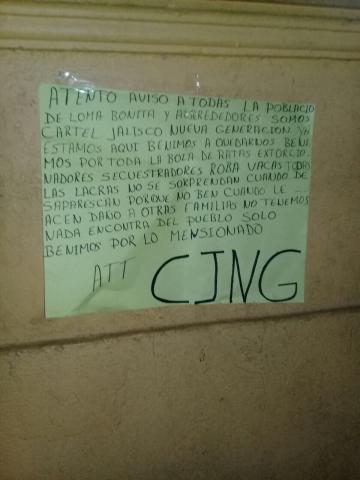 ATENTO AVISO A TODAS LA POBLACIO
DE LOMA BONITA Y ALRREDEDORES SOMOS
CARTEL JALISCO NUEVA GENERACION. YA
ESTAMOS AQUI BENIMOS A QUEDARNOS BENI
MOS POR TODA LA BOLA DE RATAS EXTORCIO
NADORES SECUESTRADORES ROBA VACAS TODAS
LAS LACRAS NO SE SORPRENDAN CUANDO DE
SAPARESCAN PORQUE NO BEN CUANDO LE ....
ACEN DAÑO A OTRAS FAMILIAS NO TENEMOS
NADA ENCONTRA DEL PUEBLO SOLO
BENIMOS POR LO MENSIONADO
ATT CJNG